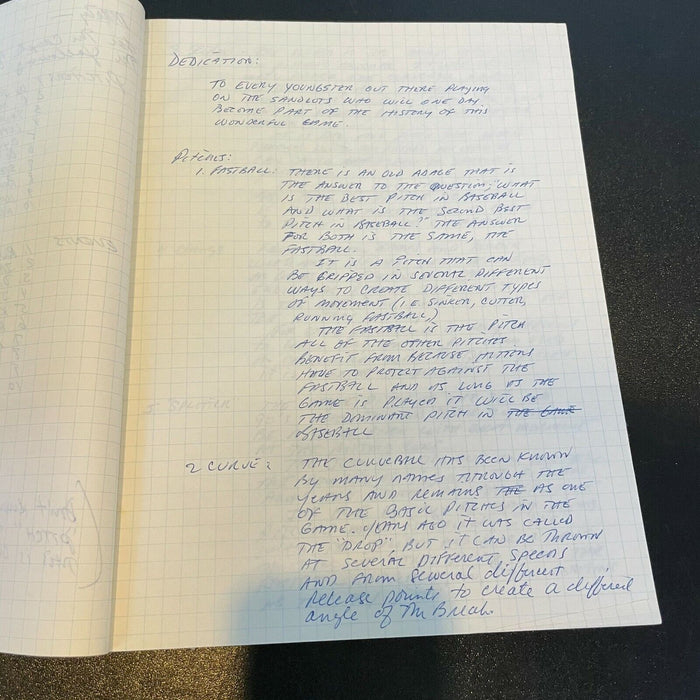 DEDICATION:
TO EVERY YOUNGSTER OUT THERE PLAYING
ON THE SANDLOTS WHO WILL ONE DAY
BECOME PART OF THE HISTORY OF THIS
WONDERFUL GAME.
PITCHES:
1. FASTBALL: THERE IS AN OLD ADAGE THAT IS
THE ANSWER TO THE QUESTION; "WHAT
IS THE BEST PITCH IN BASEBALL
AND WHAT IS THE SECOND BEST
PITCH IN BASEBALL?" THE ANSWER
FOR BOTH IS THE SAME, THE
FASTBALL.
IT IS A PITCH THAT CAN
BE GRIPPED IN SEVERAL DIFFERENT
WAYS TO CREATE DIFFERENT TYPES
OF MOVEMENT (I.E. SINKER, CUTTER,
RUNNING FASTBALL)
THE FASTBALL IS THE PITCH
ALL OF THE OTHER PITCHES
BENEFIT FROM BECAUSE HITTERS
HAVE TO PROTECT AGAINST THE
FASTBALL AND AS LONG AS THE
GAME IS PLAYED IT WILL BE
THE DOMINANT PITCH IN THE GAME
BASEBALL
2 CURVE: THE CURVEBALL HAS BEEN KNOWN
BY MANY NAMES THROUGH THE
YEARS AND REMAINS THE AS ONE
OF THE BASIC PITCHES IN THE
GAME. YEARS AGO IT WAS CALLED
THE "DROP", BUT IT CAN BE THROWN
AT SEVERAL DIFFERENT SPEEDS
AND FROM Several different
release points to create a different
angle of the Break.